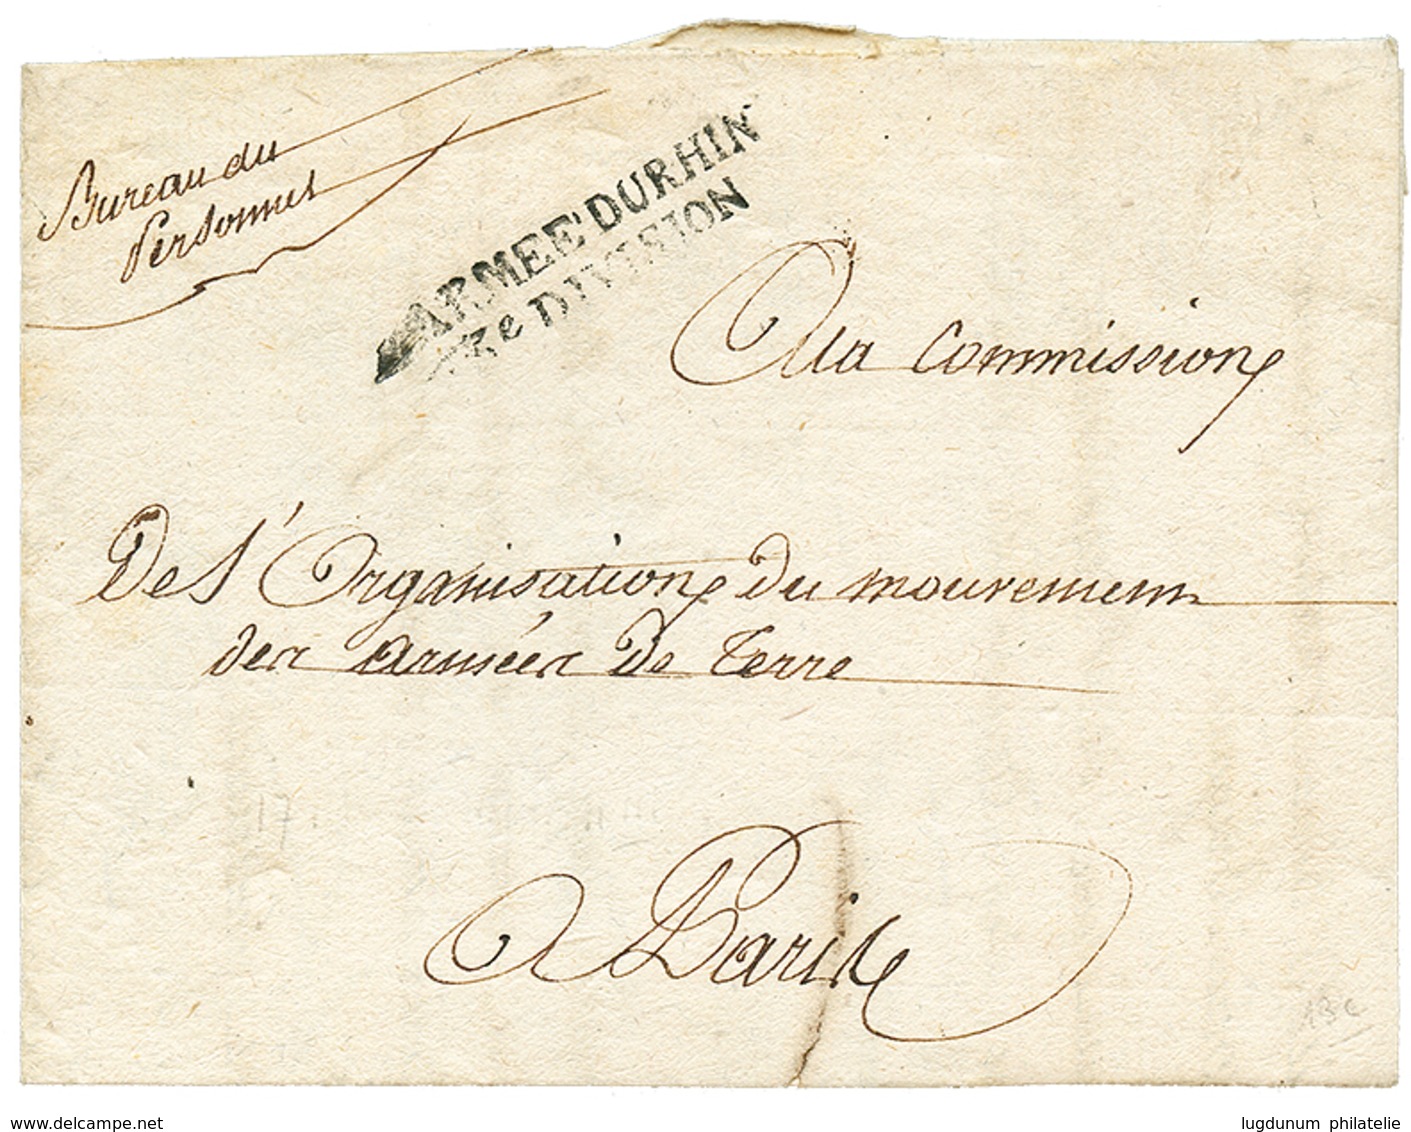 Bureau du
Personnel
ARMEE DU RHIN
3e DIVISION
A la Commission
De l'Organisation du mouvement
des armées de Terre
A Paris
17
13e
www.delcampe.net
lugdunum philatelie